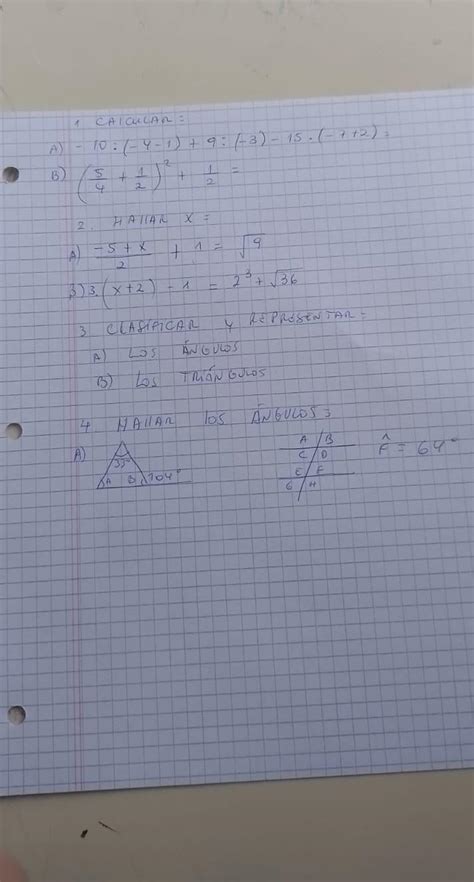 1 CALCULAR:
A) - 10 : (-4-1) + 9 : (-3) - 15 · (-7+2) =
B) (5/4 + 1/2)² + 1/2 =
2. HALLAR X =
A) -5+x/2 + 1 = √9
B) 3·(x+2) - 1 = 2³ + √36
3 CLASIFICAR Y REPRESENTAR:
A) LOS ÁNGULOS
B) LOS TRIÁNGULOS
4 HALLAR LOS ÁNGULOS:
A) 35° A B 104°
A B
C D
E F
G H
F̂ = 64°